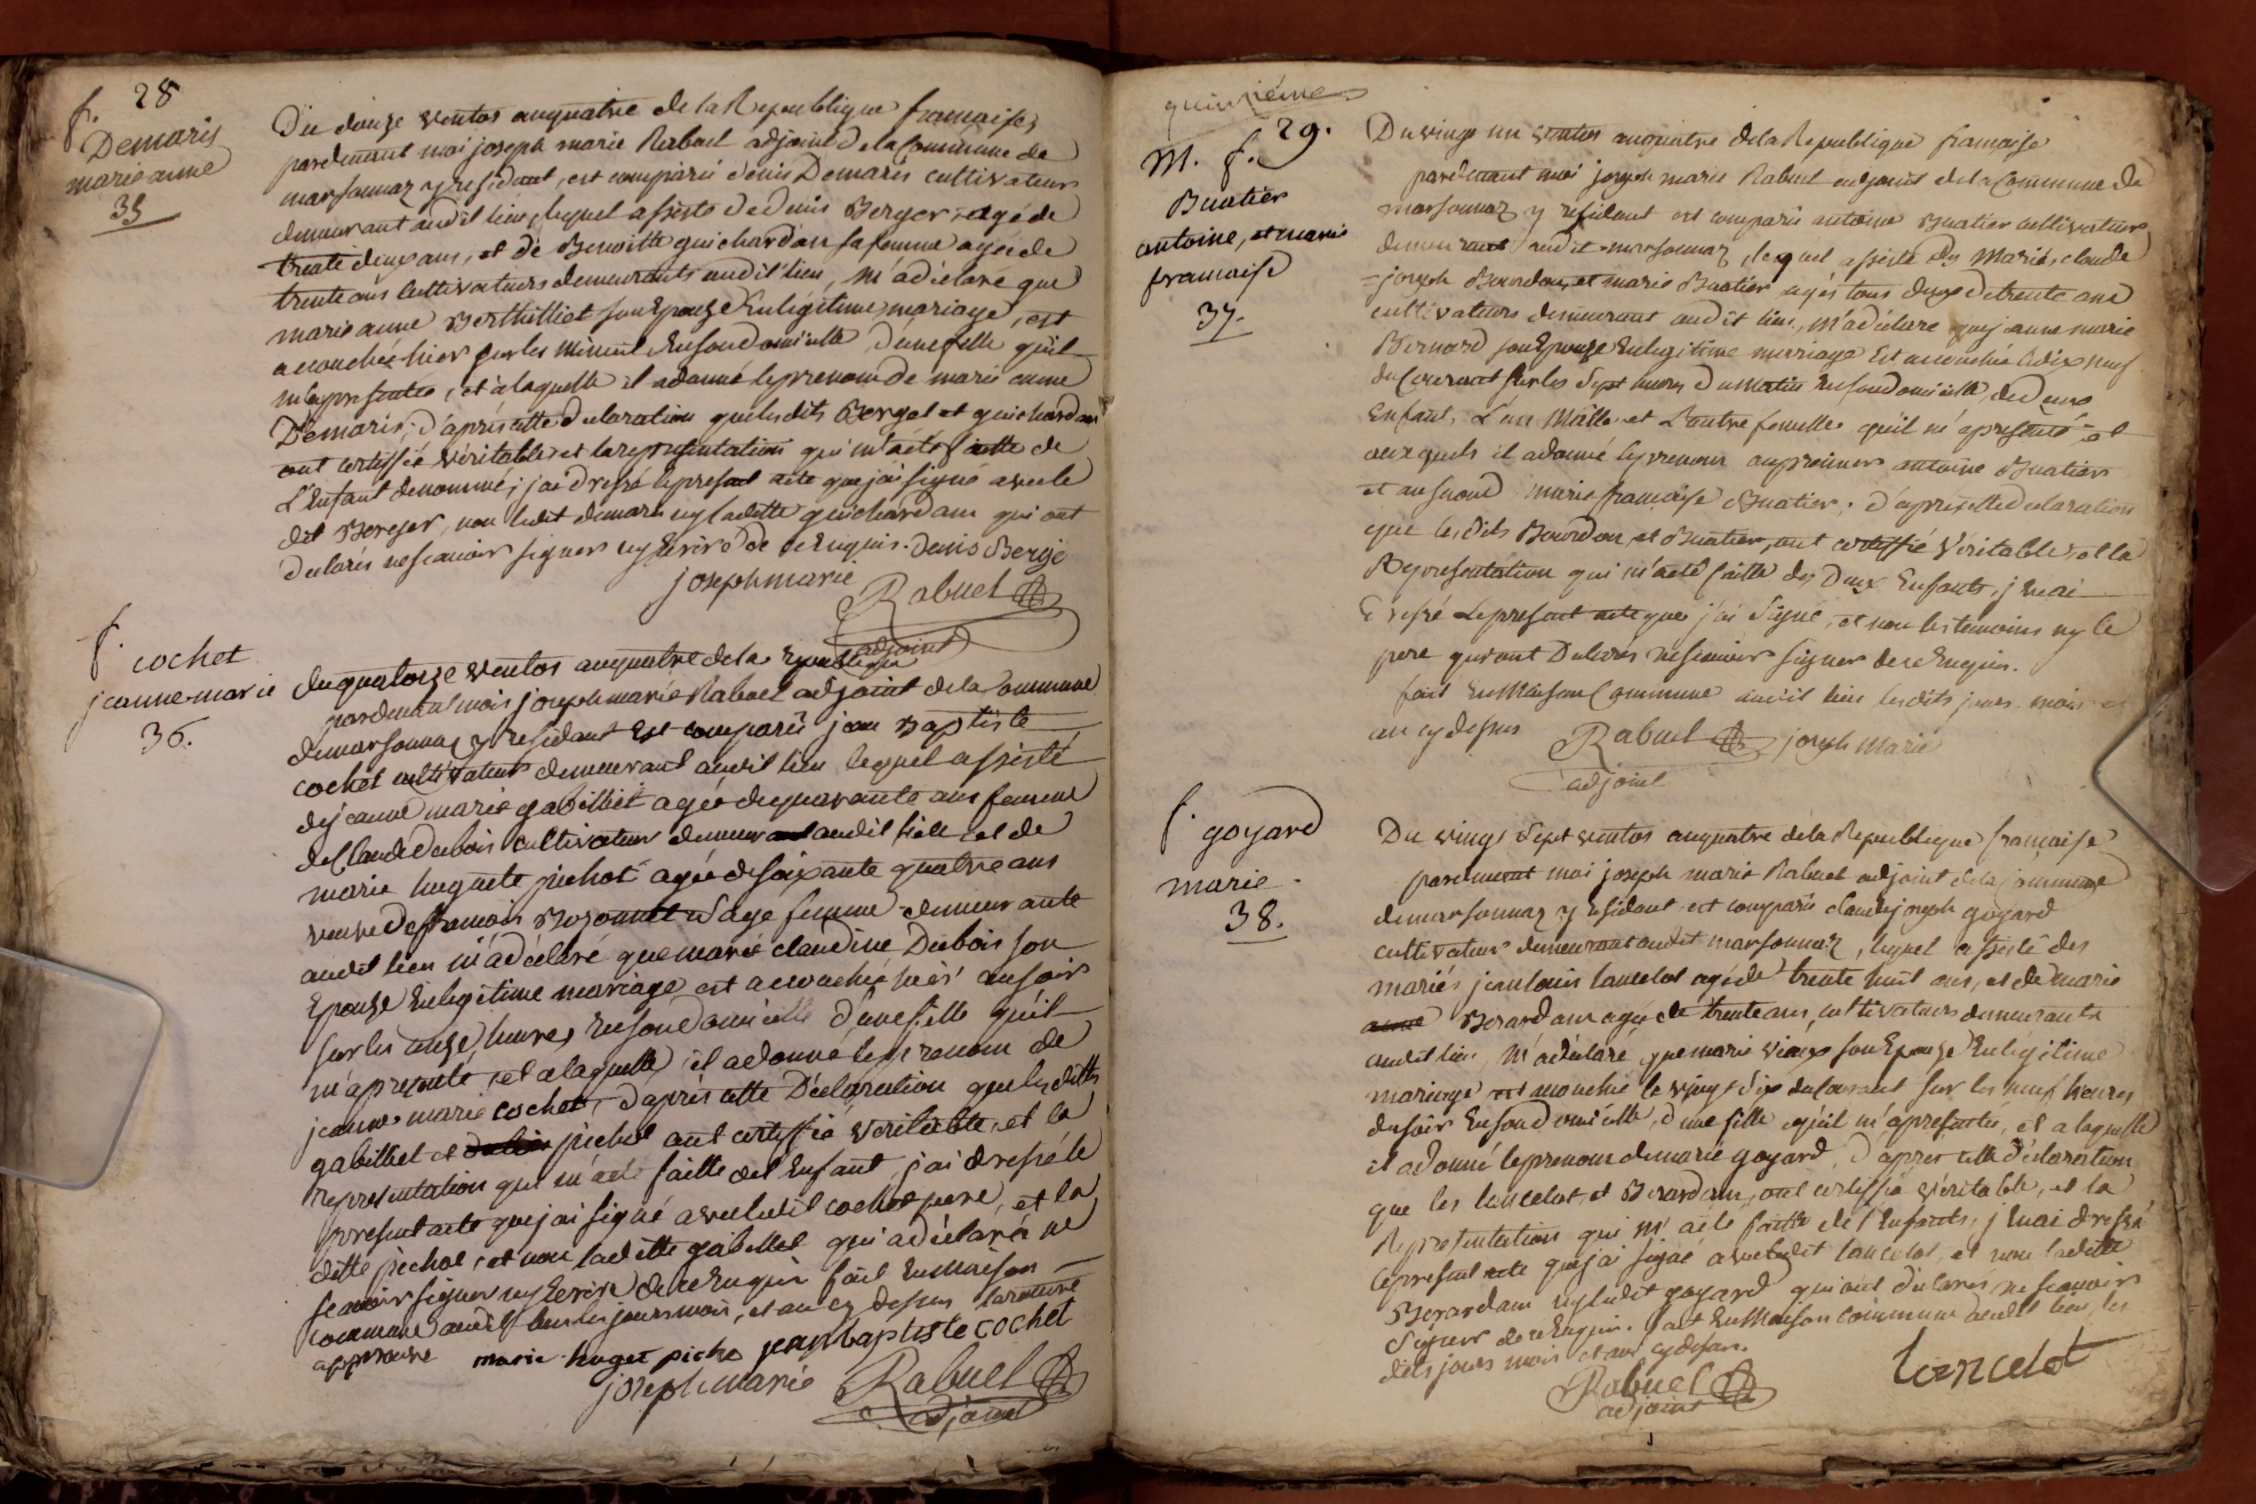 28
f.
Demaris
marie anne
35
Du douze ventos anquatre de la Republique francaise,
pardevant moi joseph marie Rabuel adjoint de la Commune de
marsonnaz y residant, est comparû denis Demaris cultivateur
demeurant audit lieu, lequel assisté de denis Berger, agé de
trente deux ans, et de Benoitte guichardan sa femme agée de
trente ans cultivateurs demeurants audit lieu, m'a déclaré que
marie anne Berthilliet son Epouze En légitime mariage, est
accouchée hier sur les Minuit En son domicille d'une fille qu'il
m'a présentée, et a laquelle il a donné le prenom de marie anne
Demaris, d'après cette declaration que lesdits Berger et guichardan
ont certiffié véritable et la représentation qui m'a été faitte de
L'Enfant denommé; j'ai Dressé le present acte que j'ai signé avec le
dit Berger, non ledit demaris ny laditte guichardan qui ont
declarés ne scavoir signer ny Ecrire de ce Enquis. denis Berge
joseph marie
Rabuel
adjoint
f. cochet
jeanne-marie
36.
du quatorze ventos anquatre de la Republique
pardevant moi joseph marie Rabuel adjoint de la Commune
de marsonnaz y residant Est comparû jean Baptiste
cochet cultivateur demeurant audit lieu lequel assisté
de jeanne marie gabilliet agée de quarante ans femme
de Claude dubois cultivateur demeurant audit lieu et de
marie huguete pichot agée de soixante quatre ans
veuve de francois Bozonnet sage femme demeurante
audit lieu m'a déclaré que marie claudine Dubois son
Epouze En legitime mariage est accouchée hier au soir
sur les onze heures En son domicille d'une fille qu'il
m'a presenté, et a laquelle il a donné le prenom de
jeanne marie cochet, d'après cette Déclaration que lesdittes
gabilliet et pichot ont certiffié véritable, et la
représentation qui m'a eté faitte de l'Enfant, j'ai dressé le
present acte que j'ai signé avec ledit cochet pere, et la
ditte pichot, et non laditte gabilliet qui a déclaré ne
scavoir signer ny Ecrire de ce Enquis fait En Maison
commune audit lieu les jours mois, et an cy dessus la rature
approuvé marie huget picho jean baptiste cochet
joseph marie Rabuel
adjoint
quinzième
29.
M. f.
Buatier
antoine, et marie
francaise
37.
Du vingt un ventos anquatre de la Republique francaise
pardevant moi joseph marie Rabuel adjoint de la Commune de
marsonnaz y residant est comparû antoine Buatier cultivateur
demeurant audit marsonnaz, lequel assisté des Mariés, claude
joseph Bourdon, et marie Buatier agés tous deux de trente ans
cultivateurs demeurant audit lieu, m'a déclaré que jeanne marie
Bernard son Epouze En legitime mariage Est accouchée le dix neuf
du Courant sur les Sept heures du matin En son domicille, de deux
Enfants, L'un Mâlle, et L'autre femelle qu'il m'a présenté et
auxquels il a donné les prenoms au premier antoine Buatier
et au second marie francoise Buatier, d'après cette déclaration
que lesdits Bourdon, et Buatier, ont certiffié Véritable, et la
Représentation qui m'a eté faitte des deux Enfants, j'en ai
Dressé Le present acte que j'ai Signé, et non les temoins ny le
pere qui ont Déclarés ne scavoir signer de ce Enquis.
fait En Maison Commune audit lieu lesdits jours, mois et
an cy dessus
Rabuel joseph Marie
adjoint
f. goyard
marie
38.
Du vingt Sept ventos anquatre de la Republique francaise
pardevant moi joseph marie Rabuel adjoint de la Commune
de marsonnaz y residant est comparû claude joseph goyard
cultivateur demeurant audit marsonnaz, lequel assisté des
mariés jean louis lancelot agé de trente huit ans, et de marie
Berardan agée de trente ans, cultivateurs demeurants
audit lieu, M'a déclaré que marie son Epouze En legitime
mariage est accouchée le vingt Six du Courant sur les neuf heures
du soir En son domicille, d'une fille qu'il m'a présentée, et a laquelle
il a donné le prenom de marie goyard, d'après cette déclaration
que les lancelot, et Berardan, ont certiffié véritable, et la
Représentation qui m'a eté faitte de l'Enfant, j'en ai dressé
le present acte que j'ai signé avec ledit lancelot, et non laditte
Berardan ny ledit goyard qui ont déclarés ne scavoir
Signer de ce Enquis. fait En Maison commune audit lieu, les
dits jours mois et an cy dessus.
Rabuel
adjoint
lancelot